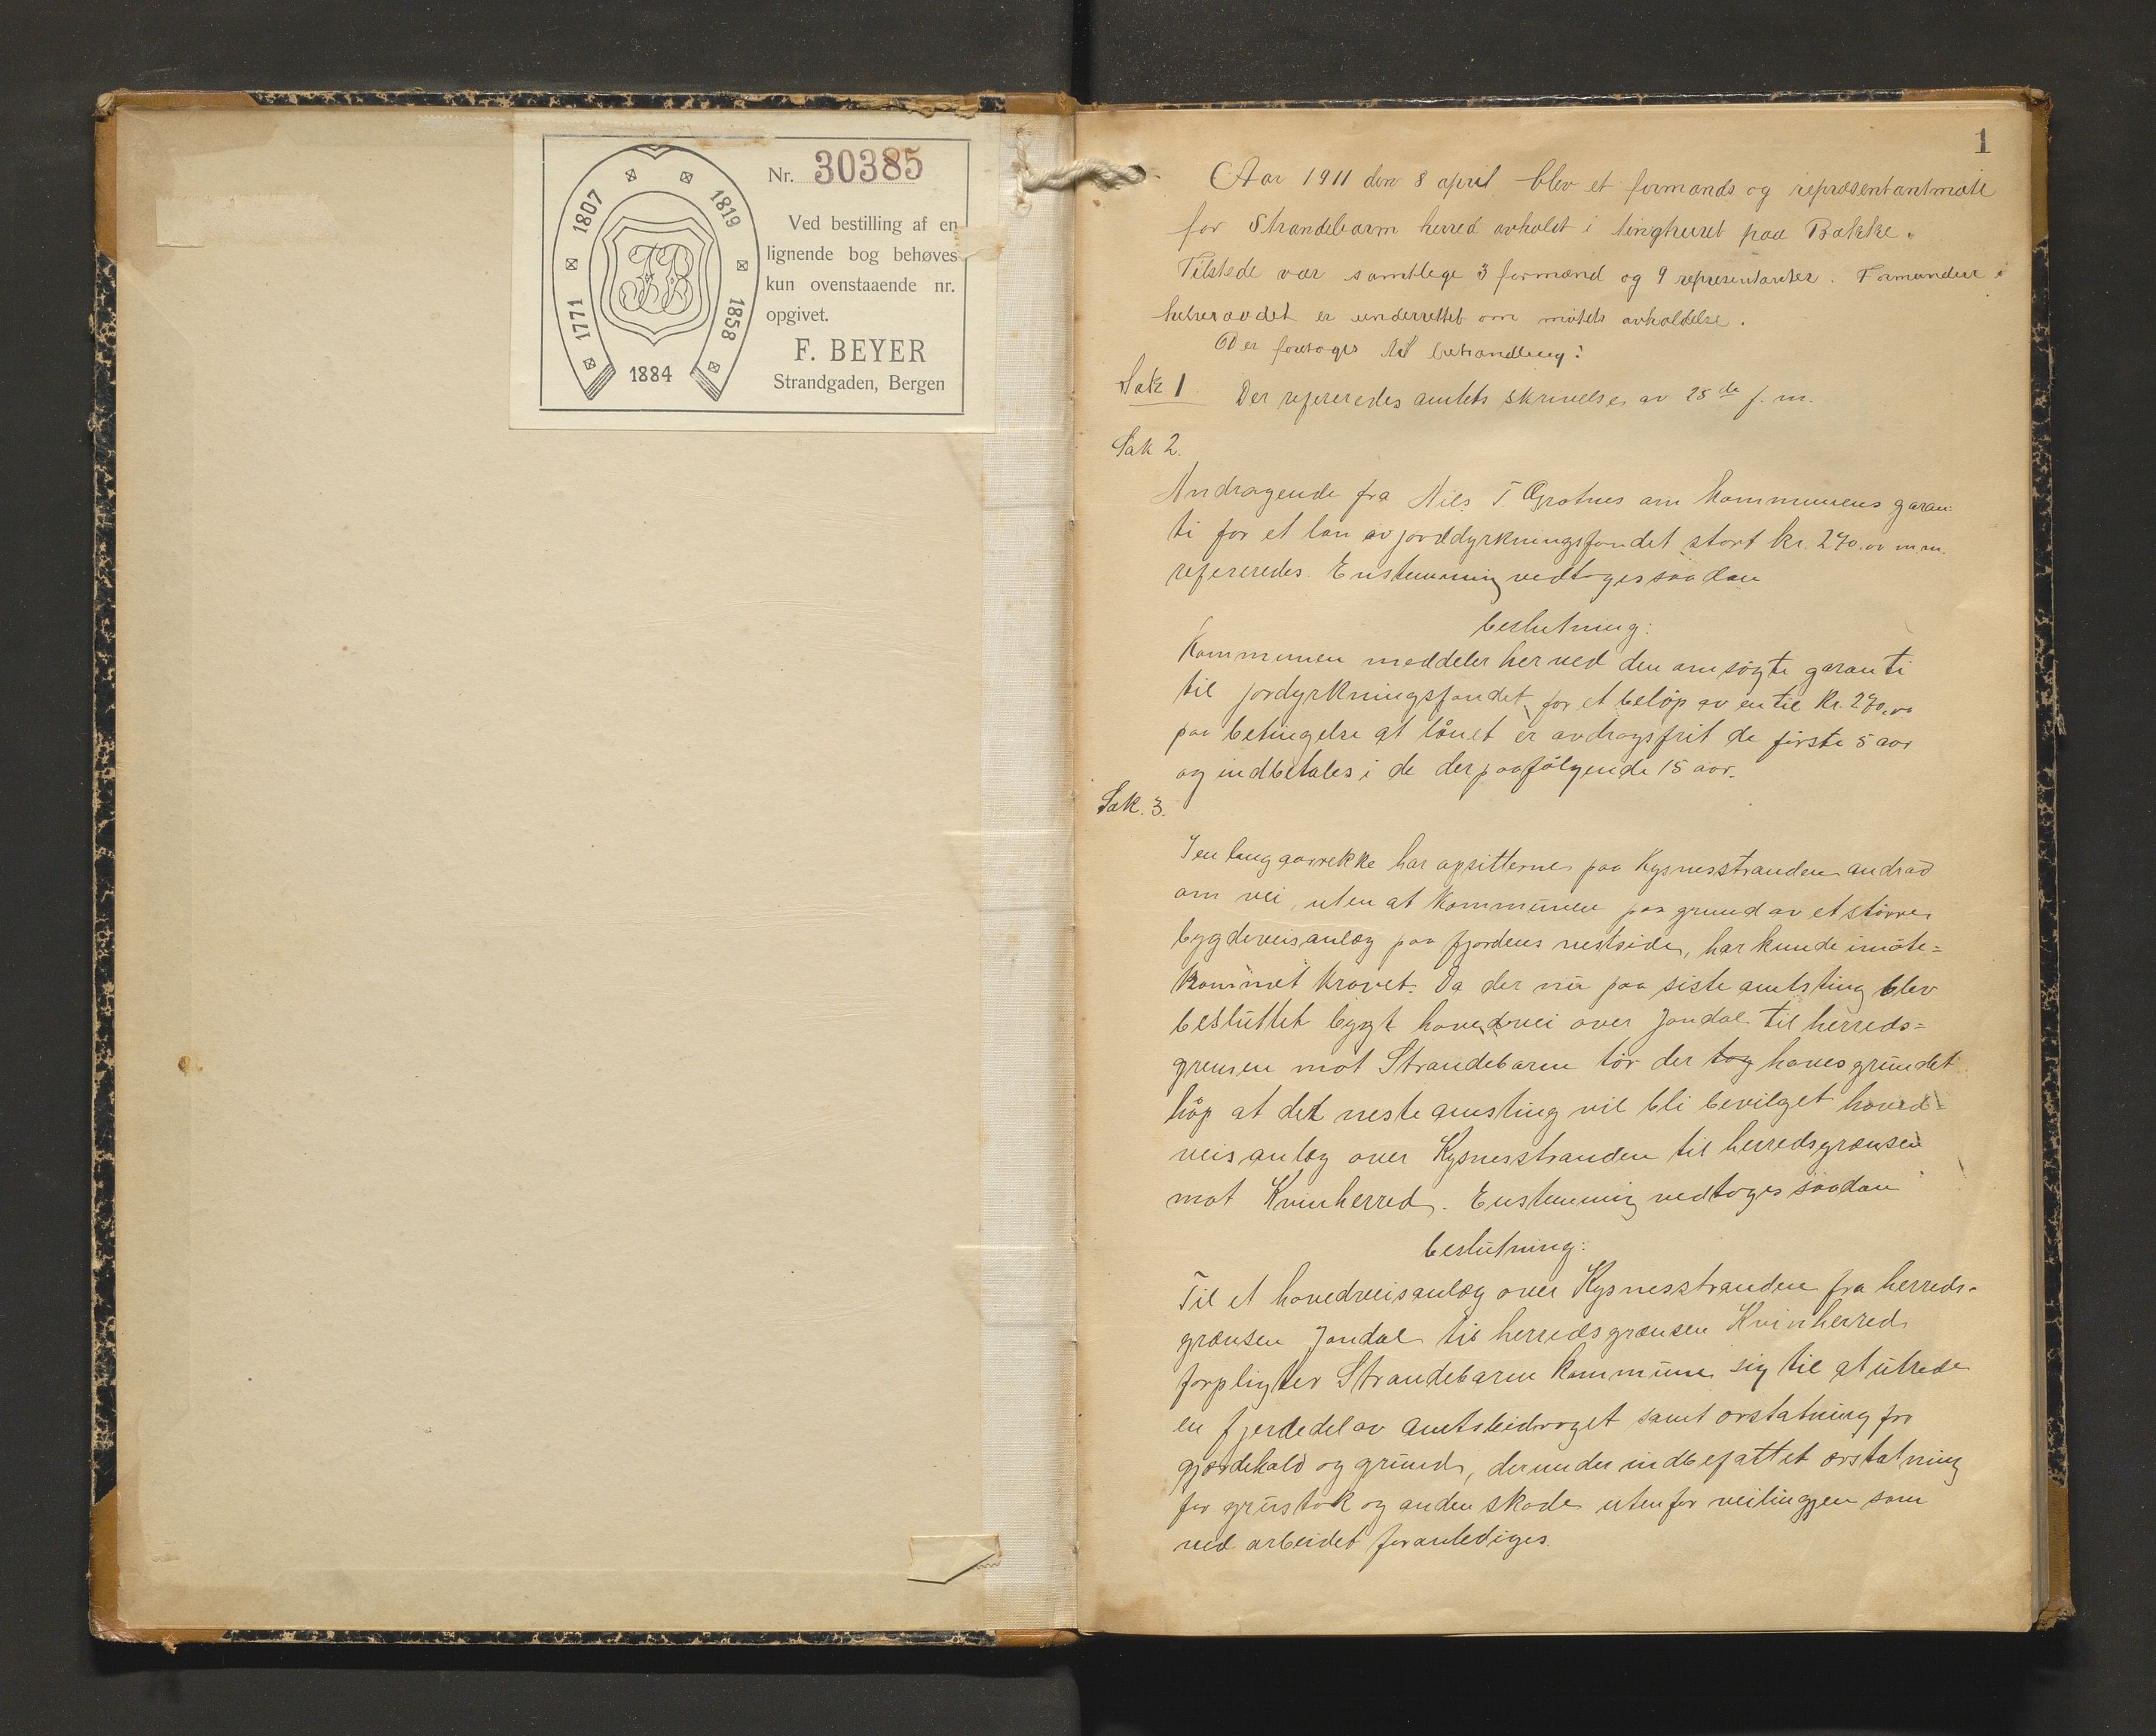 Nr. 30385
1771 1807 1819 1858
1884
FB
Ved bestilling af en
lignende bog behøves
kun ovenstaaende nr.
opgivet.
F. BEYER
Strandgaden, Bergen
1
Aar 1911 den 8 april blev et formands og repræsentantmøte
for Strandebarm herred avholdt i tinghuset paa Bakke.
Tilstede var samtlege 3 formænd og 9 representanter. Formanden i
helseraadet er underrettet om møtets avholdelse.
Der foretoges til behandling:
Sak 1. Der refereredes amtets skrivelse av 25de f. m.
Sak 2.
Andragende fra Nils T. Grotnes om kommunens garan-
ti for et lån av jorddyrkningsfondet stort kr. 270.00 m.m.
refereredes. Enstemmig vedtoges saadan
beslutning:
Kommunen meddeler herved den ansøgte garanti
til jordyrkningsfondet for et beløp av en til kr. 270.00
paa betingelse at lånet er avdragsfrit de første 5 aar
og indbetales i de derpaafølgende 15 aar.
Sak. 3.
I en lang aarrekke har opsitterne paa Kysnesstranden andrad
om vei, uten at kommunen paa grund av et større
bygdeveisanlæg paa fjordens vestside, har kunde imøte-
kommet kravet. Da der nu paa siste amtsting blev
besluttet bygt hovedvei over Jondal til herreds-
grensen mot Strandebarm tør der haves grundet
håp at det neste amsting vil bli bevilget hoved-
veisanlæg over Kysnesstranden til herredsgrænsen
mot Kvinherred. Enstemmig vedtoges saadan
beslutning:
Til et hovedveisanlæg over Kysnesstranden fra herreds-
grænsen Jondal til herredsgrænsen Kvinherred
forpligter Strandebarm kommune sig til at utrede
en fjerdedel av amtsbidraget samt erstatning for
gjærdehold og grund, derunder indbefattet erstatning
for grustak og anden skade utenfor veilingjen som
ved arbeidet foranlediges.